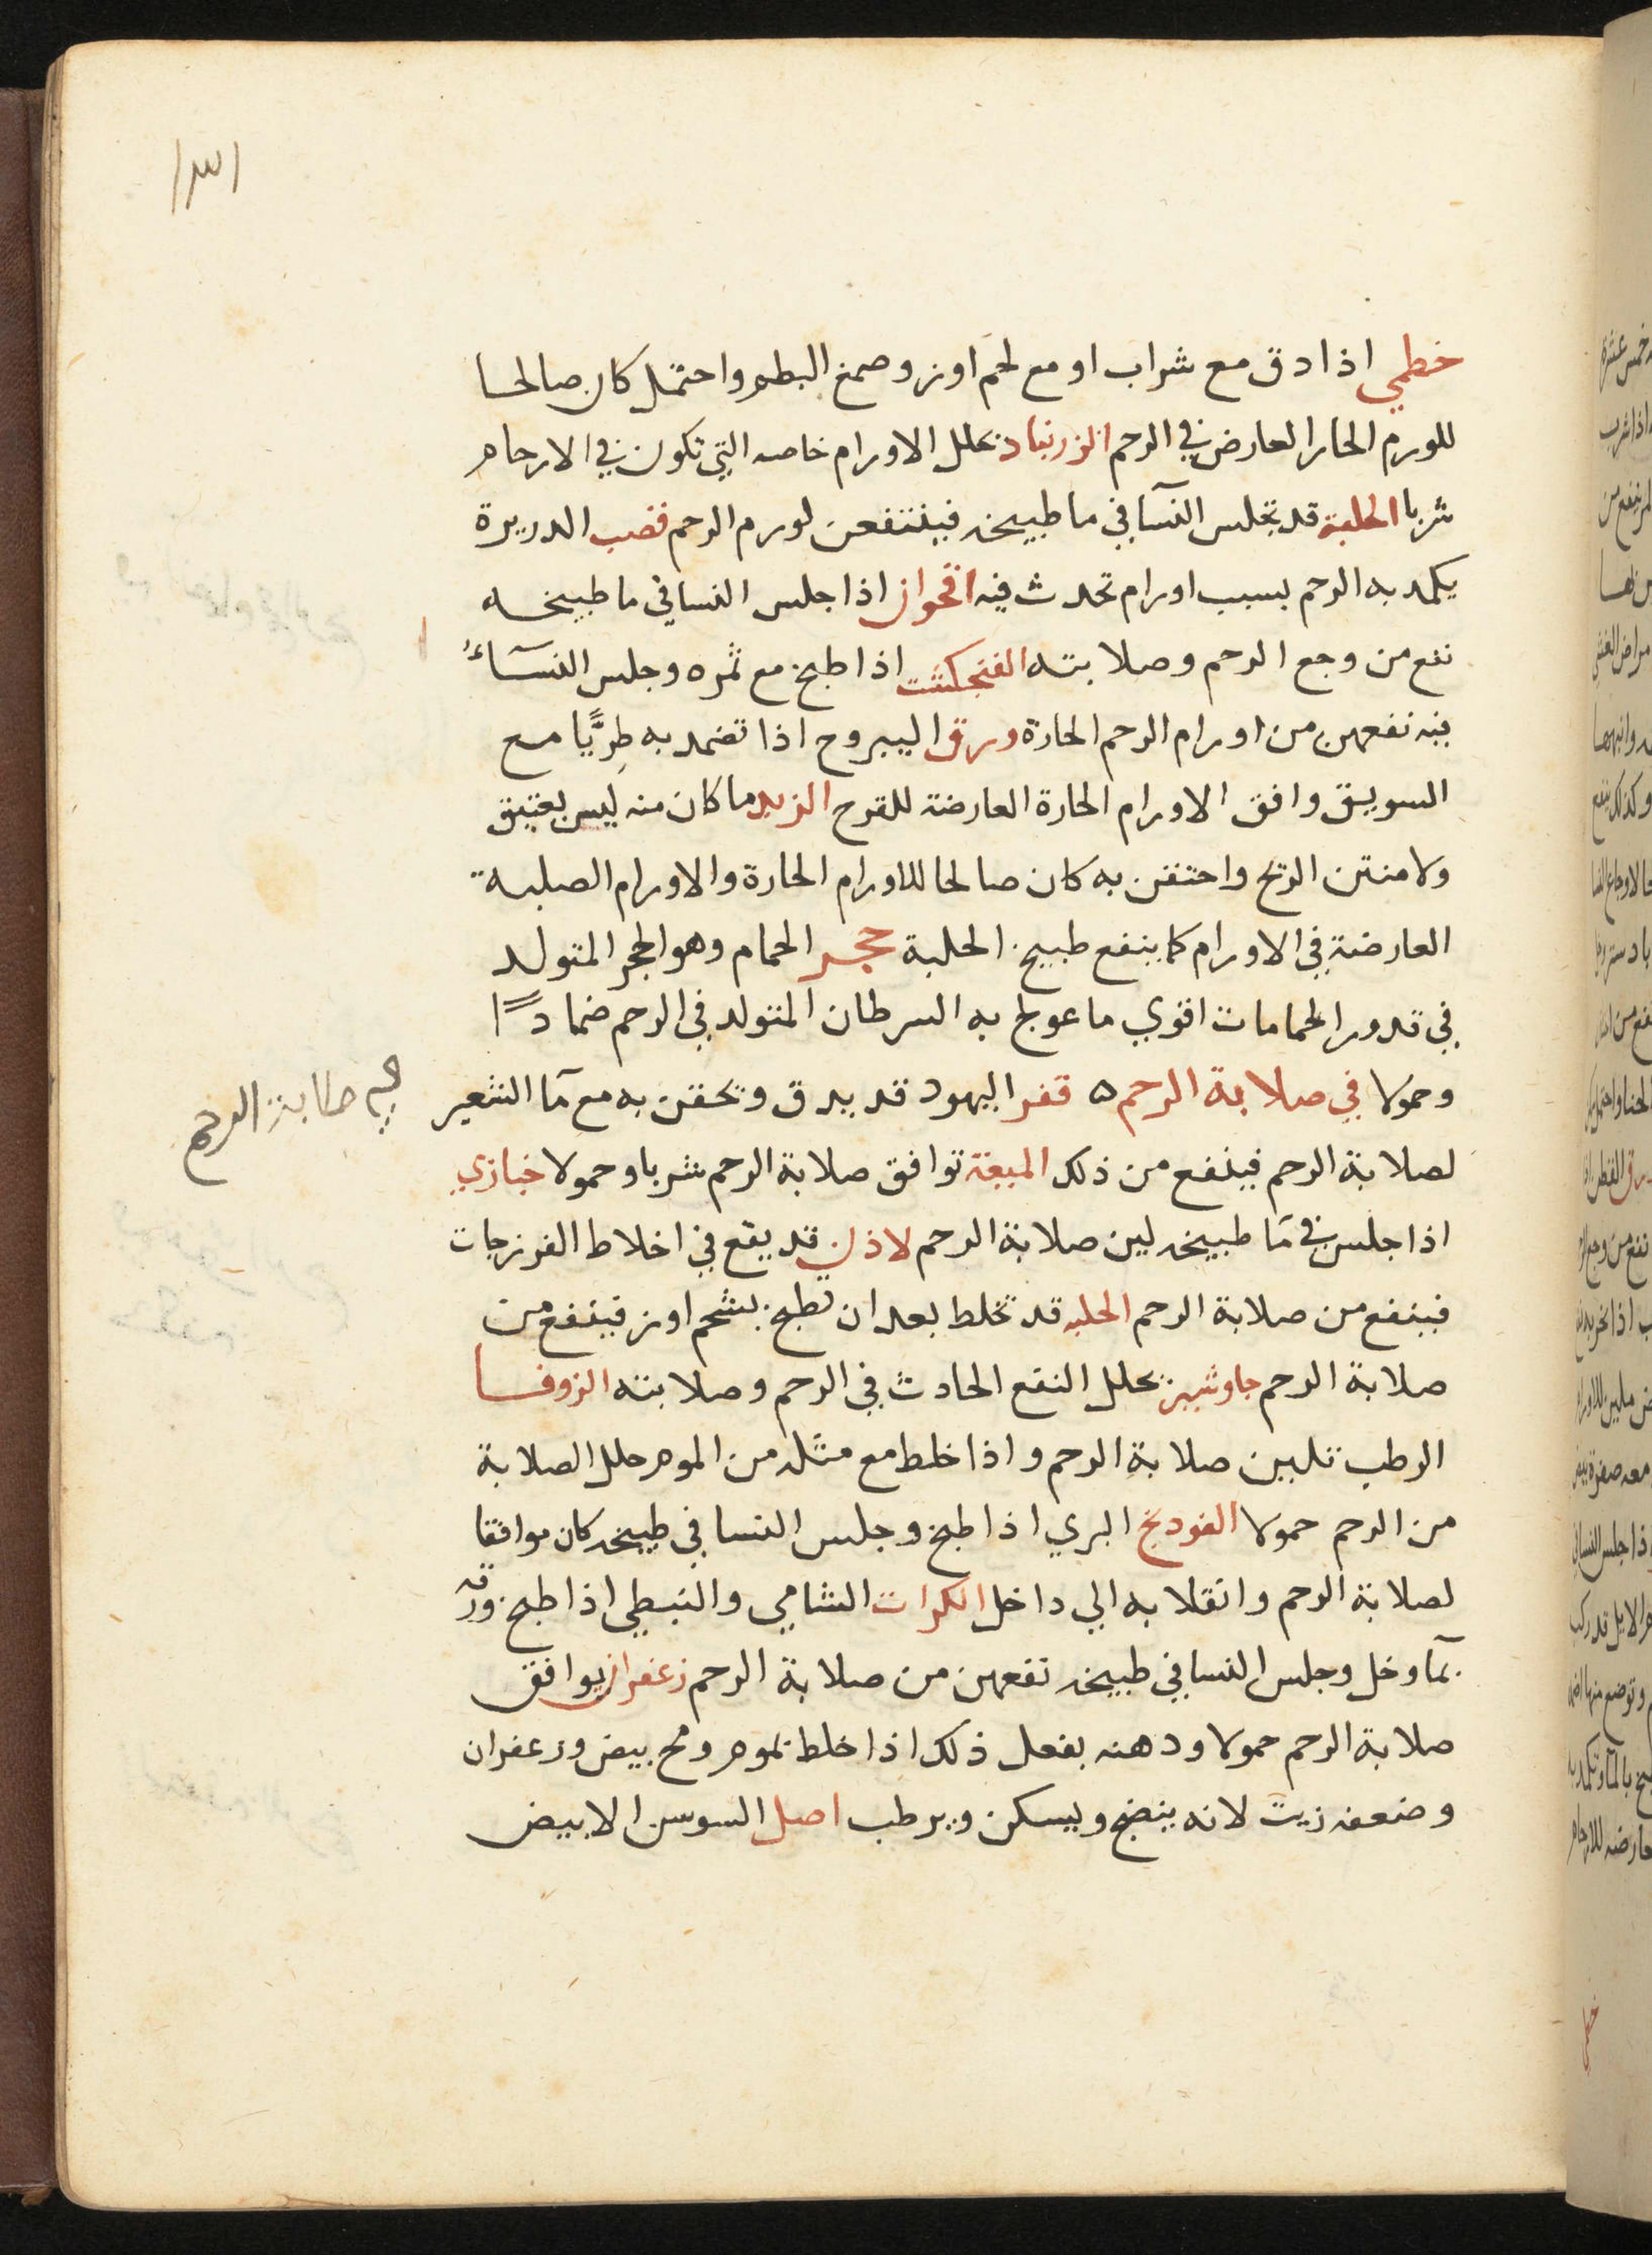 ١٣١
خطمي اذا دق مع شراب او مع لحم اوز وصمغ البطم واحتمل كان صالحا
للورم الحار العارض في الرحم الزرنباد يحلل الاورام خاصه التي تكون في الارحام
شربا الحلبة قد تجلس النسآ في ما طبيخه فينتفعن لورم الرحم قصب الدريرة
يكمد به الرحم بسبب اورام تحدث فيه اقحوان اذا جلس النسا في ما طبيخه
نفع من وجع الرحم وصلابته الفنجكشت اذا طبخ مع ثمره وجلس النسآء
فيه نفعهن من اورام الرحم الحارة ورق اليبروح اذا تضمد به طريًّا مع
السويق وافق الاورام الحارة العارضة للقرح الزبد ما كان منه ليس بعتيق
ولا منتن الريح واحتقن به كان صالحا للاورام الحارة والاورام الصلبة
العارضة في الاورام كما ينفع طبيخ الحلبة حجر الحمام وهو الحجر المتولد
في قدور الحمامات اقوي ما عولج به السرطان المتولد في الرحم ضمادًا
وحمولا في صلابة الرحم ه قفر اليهود قد يدق وتحقن به مع مآ الشعير
لصلابة الرحم فينفع من ذلك الميعة توافق صلابة الرحم شربا وحمولا خبازي
اذا جلس في مآ طبيخه لين صلابة الرحم لاذن قد يقع في اخلاط الفرزجات
فينفع من صلابة الرحم الحلبه قد تخلط بعد ان تطبخ بشحم اوز فينفع من
صلابة الرحم جاوشير يحلل النفع الحادث في الرحم وصلابته الزوفا
الرطب تليين صلابة الرحم واذا خلط مع مثله من الموم حلل الصلابة
من الرحم حمولا الفودنج البري اذا طبخ وجلس النسا في طبيخه كان موافقا
لصلابة الرحم وانقلابه الي داخل الكراث الشامي والنبطي اذا طبخ ورقه
بمآ وخل وجلس النسا في طبيخه نفعهن من صلابة الرحم زعفران يوافق
صلابة الرحم حمولا ودهنه يفعل ذلك اذا خلط بموم ومح بيض وزعفران
وضعفه زيت لانه ينضج ويسكن ويرطب اصل السوسن الابيض
في صلابة الرحم